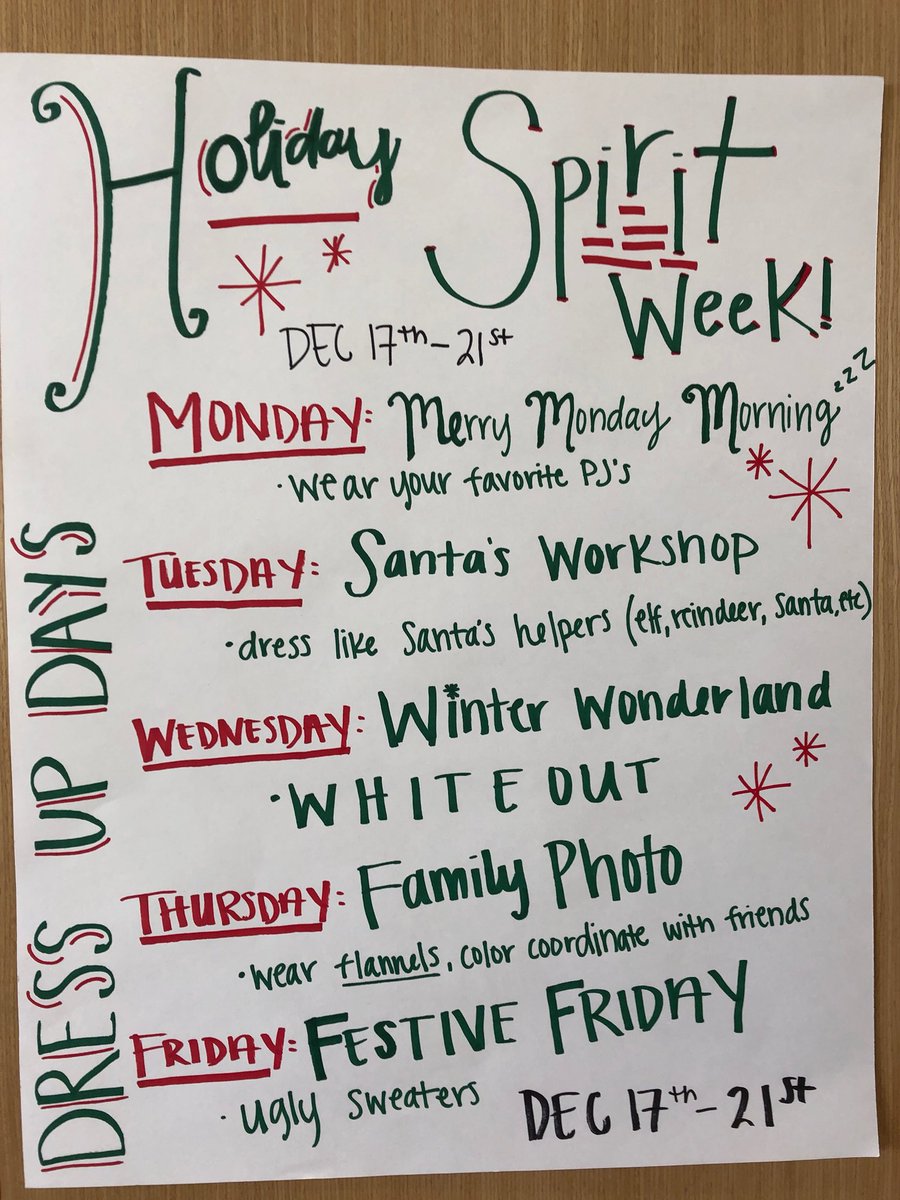 Holiday Spirit
Week!
DEC 17th - 21st
MONDAY: Merry Monday Morning zzz
• wear your favorite PJ's
TUESDAY: Santa's Workshop
• dress like Santa's helpers (elf, reindeer, Santa, etc)
WEDNESDAY: Winter Wonderland
• WHITE OUT
THURSDAY: Family Photo
• wear flannels, color coordinate with friends
FRIDAY: FESTIVE FRIDAY
• ugly sweaters
DEC 17th - 21st
DRESS UP DAYS